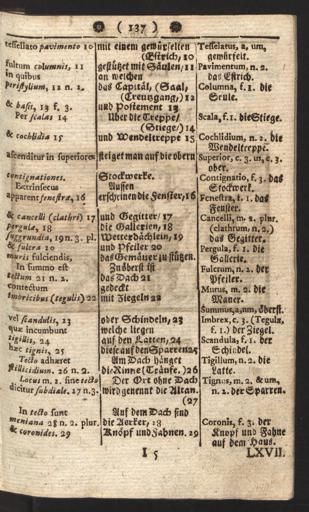 ( 137 )
tessellato pavimento 10
fultum columnis, 11
in quibus
peristylium, 11 n. 2.
& basis, 13 f. 3.
Per scalas 14
& cochlidia 15
ascenditur in superiores
contignationes.
Extrinsecus
apparent fenestræ, 16
& cancelli (clathri) 17
pergulæ, 18
suggrundia, 19 n. 3. pl.
& fulcra 20
muris fulciendis,
In summo est
tectum 21 n. 2.
contectum
imbricibus (tegulis) 22
vel scandulis, 23
quæ incumbunt
tigillis, 24
hæc tignis, 25
Tecto adhæret
stillicidium. 26 n. 2.
Locus m. 2. sine tecto
dicitur subdiale. 27 n. 3.
In tecto sunt
meniana 28 n. 2. plur.
& coronides. 29
mit einem gewürfelten
(Estrich, 10
gestützt mit Säulen, 11
an welchen
das Capitäl, (Saal,
(Creutzgang,) 12
und Postement 13
Uber die Treppe/
(Stiege/ 14
und Wendeltreppe 15
steiget man auf die obern
Stockwerke.
Aussen
erscheinen die Fenster, 16
und Gegitter/ 17
die Gallerien, 18
Wetterdächlein, 19
und Pfeiler 20
das Gemäuer zu stützen.
Zuöberst ist
das Dach 21
gedeckt
mit Ziegeln 22
oder Schindeln, 23
welche liegen
auf den Latten, 24
diese auf den Sparren 25
Am Dach hänget
die Rinne (Träufe.) 26
Der Ort ohne Dach
wird genennt die Altan.
(27
Auf dem Dach sind
die Aerker, 18
Knöpf und Fahnen. 29
Tessellatus, a, um,
gewürfelt.
Pavimentum, n. 2.
das Estrich.
Columna, f. 1. die
Seule.
Scala, f. 1. die Stiege.
Cochlidium, n. 2. die
Wendeltreppe.
Superior, c. 3. us, c. 3.
ober.
Contignatio, f. 3. das
Stockwerk.
Fenestra, f. 1. das
Fenster.
Cancelli, m. 2. plur.
(clathrum, n. 2.)
das Gegitter.
Pergula, f. 1. die
Gallerie.
Fulcrum, n. 2. der
Pfeiler.
Murus, m. 2. die
Mauer.
Summus, a, um, öberst.
Imbrex, c. 3. (Tegula,
f. 1.) der Ziegel.
Scandula, f. 1. der
Schindel.
Tigillum, n. 2. die
Latte.
Tignus, m. 2. & um,
n. 2. der Sparren.
Coronis, f. 3. der
Knopf und Fahne
auf dem Haus.
I 5
LXVII.